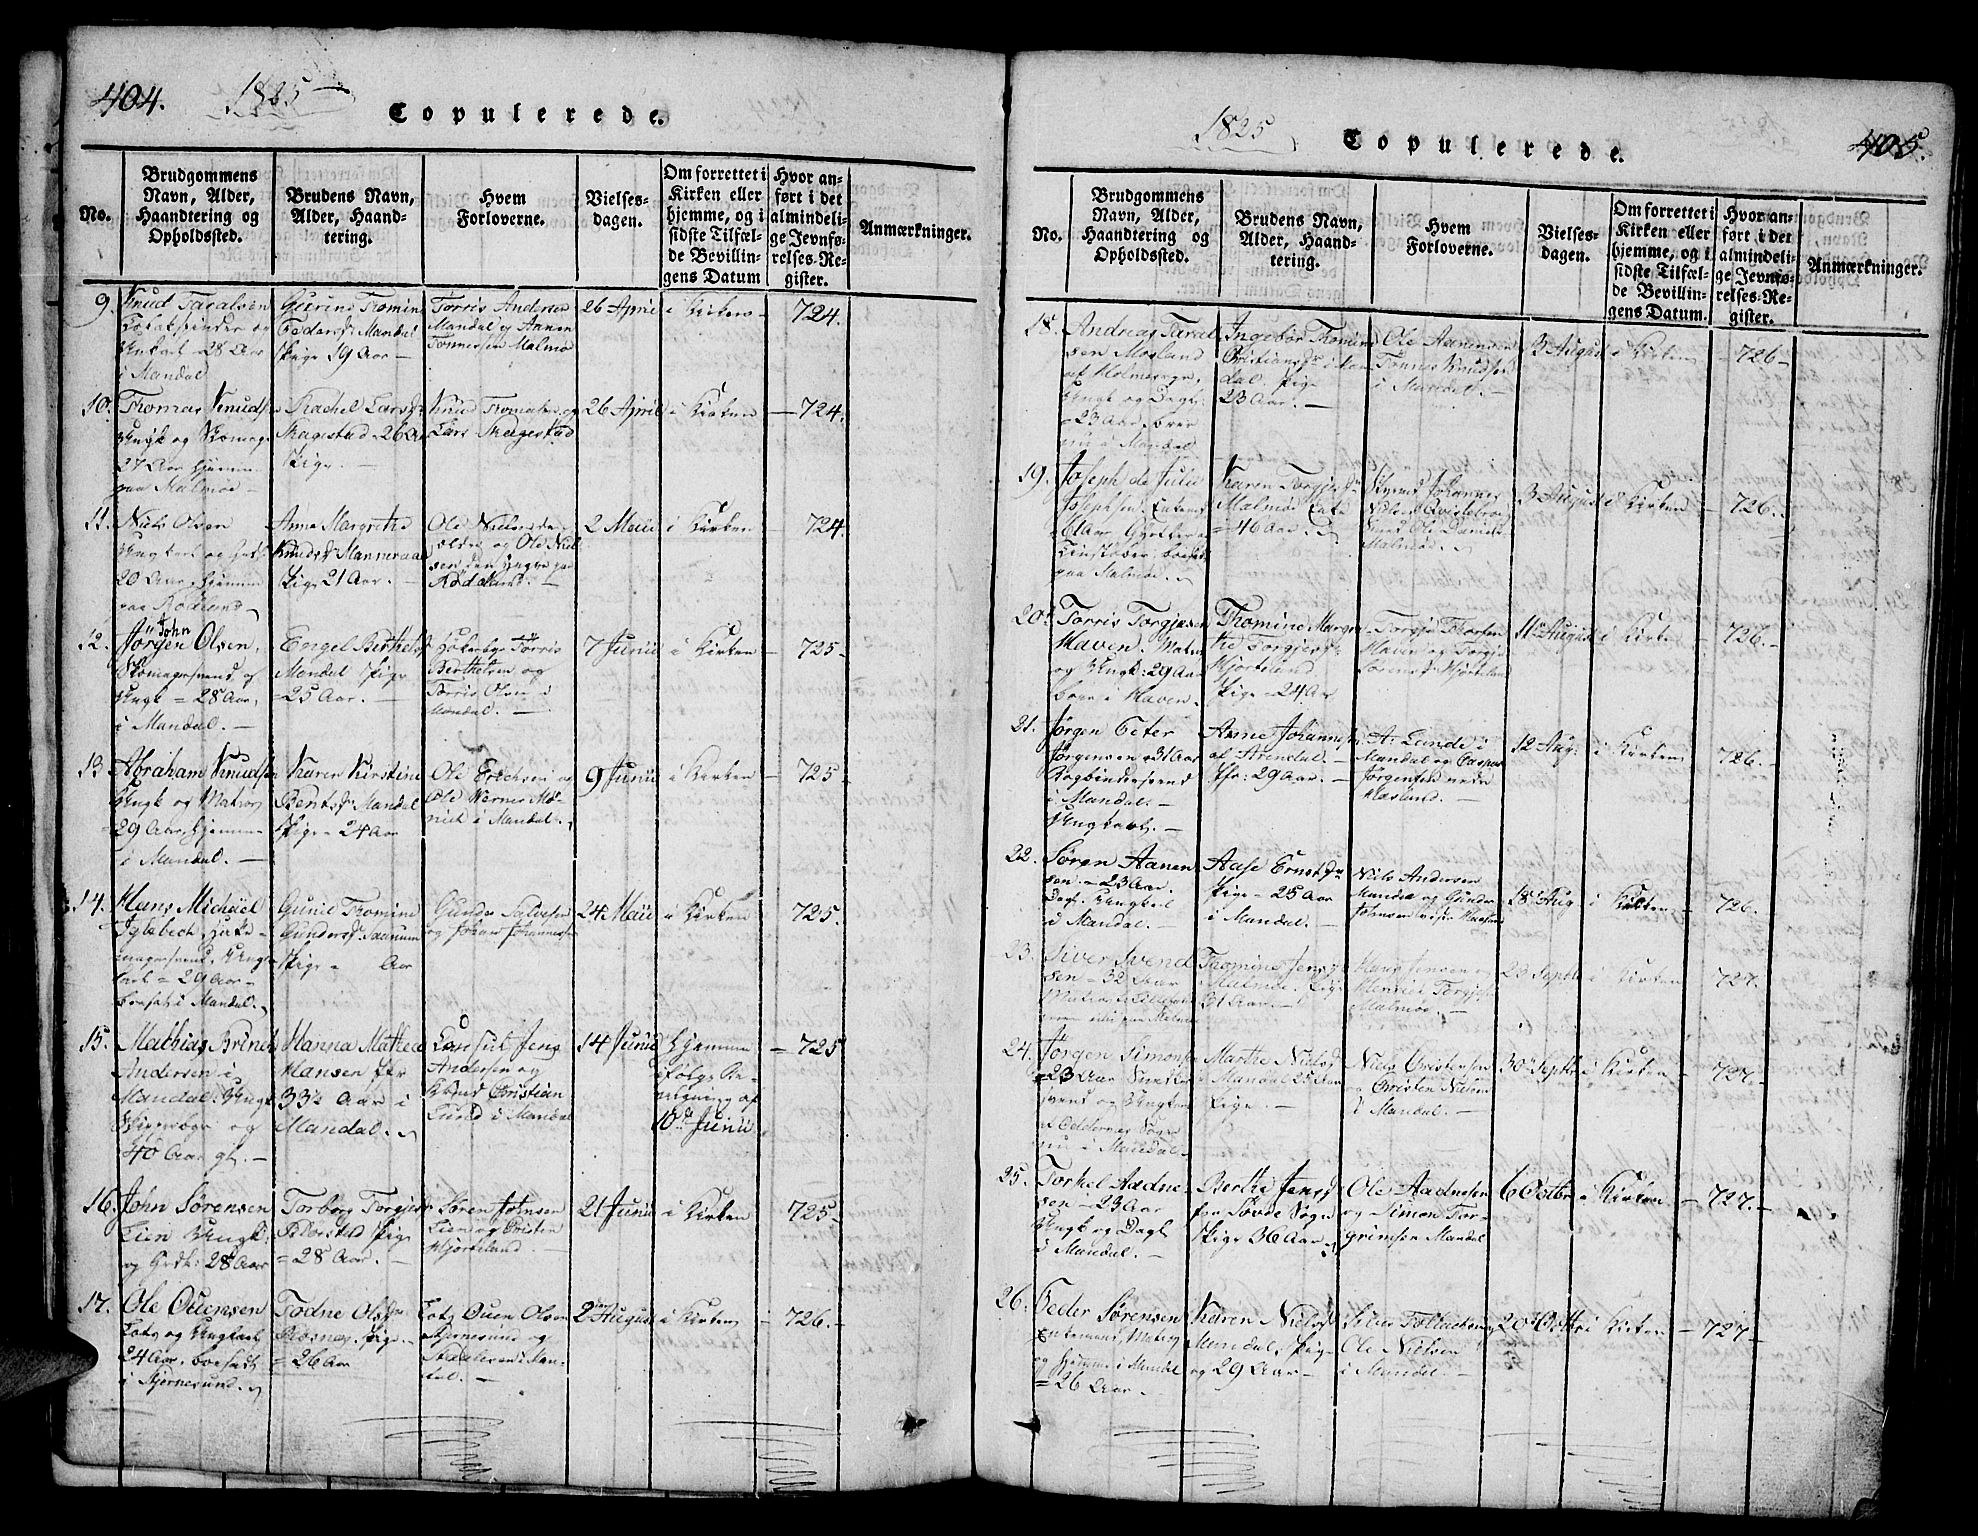 404.
1825
Copulerede.
No.
Brudgommens
Navn, Alder,
Haandtering og
Opholdssted.
Brudens Navn,
Alder, Haand-
tering.
Hvem
Forloverne.
Vielses-
dagen.
Om forrettet i
Kirken eller
hjemme, og i
sidste Tilfæl-
de Bevillin-
gens Datum
Hvor an-
ført i det
almindeli-
ge Jevnfø-
relses-Re-
gister.
Anmærkninger.
9.
Knud Taralsen
Ungkarl - 28 Aar
i Mandal
Gurine Tomine
Pedersdr Mandal
Pige 19 Aar —
Torris Andersen
Mandal og Aanen
Tønnesen Malmø
26 April
i Kirken
724.
10.
Thomas Knudsen
Ungk og
27 Aar hjemme
paa Malmøe —
Rachel Larsdr
Skagestad - 26 Aar
Pige. —
Knud Thomasen og
Lars Skagestad
26 April
i Kirken
724.
11.
Niels Olsen
20 Aar, hjemme
paa Rødland
Anne Margrethe
Knudsdr Mannevaa
Pige 21 Aar. —
Ole Nielsen den
ældre og Ole Niel-
sen den Yngre paa
2 Maii
i Kirken
724.
12.
John
Jörgen Olsen,
Skomagersvend og
Ungk = 28 Aar,
i Mandal. —
Engel Berthels
Mandal Pige
= 25 Aar. —
Torris
Berthelsen og
Torris Olsen i
Mandal. —
7 Junii
i Kirken
725
13
Abraham Knudsen
Ungk og Matros
29 Aar, hjemme
i Mandal. —
Karen Kirstine
Bentsdr Mandal
Pige - 24 Aar
Ole Erichsen og
Ole Werner Mø-
nich i Mandal.
9 Junii
i Kirken
725
14.
Hans Michael
= 29 Aar -
bosat i Mandal.
Gunil Tomine
Gundersdr
Pige = Aar
Gunder Salvesen
og Johan Johannesen
24 Maii
i Kirken
725.
15.
Mathias Brinch
Andersen i
Mandal. Ungk
og
40 Aar gl. —
Hanna Mathea
Hansen
33½ Aar i
Mandal.
Jens
Andersen og
Christian
Lund i Mandal
14 Junii
Hjemme
ifølge Be-
vilgning af
10de Junii
725
16.
John Sørensen
Lien Ungk.
og Grdb: 28 Aar
Torborg Torgjersdr
Pige
= 28 Aar. —
Søren Johnsen
Lien og Cristen
Hjorteland. —
21 Junii
i Kirken
725
17.
Ole Ouensen
Lots og Ungkarl
24 Aar, bosadt
i Skjernesund.
Todne Olsdr
Rosnes, Pige
= 26 Aar
Lots Ouen Olsen
Skjernesund og
i Man-
dal. —
2den August
i Kirken
726.
1825
Copulerede.
405.
No.
Brudgommens
Navn, Alder,
Haandtering og
Opholdssted.
Brudens Navn,
Alder, Haand-
tering.
Hvem
Forloverne.
Vielses-
dagen.
Om forrettet i
Kirken eller
hjemme, og i
sidste Tilfæl-
de Bevillin-
gens Datum.
Hvor an-
ført i det
almindeli-
ge Jevnfø-
relses-Re-
gister.
Anmærkninger.
18.
Andreas Taral
sen Mosland
af Holmesogn,
Ungk og Dagl.
23 Aar
nu i Mandal
Ingebor Thomine
Cristiansdr i Man
dal, Pige
23 Aar. —
Ole Aanensen
Tønnes Knudsen
i Mandal. —
3 August
i Kirken
726
19.
Joseph de Julio
Josephsen, Enkemd
61 Aar
paa Malmøe.
Karen Torgjersdr
Malmøe Enke
= 46 Aar.
Johannes
Nilsen
Ole Daniels
Malmøe.
3 August
i Kirken
726
20.
Torris Torgjusen
Haven. Matros
og Ungk: 29 Aar
boer i Haven.
Thomine Margre
the Torgjersdr
Hjorteland
Pige = 24 Aar
Torgju Thorsen
Haven og Torgju
Hjorteland
11 August
i Kirken
726.
21.
Jørgen Peter
Jørgensen - 31 Aar
Bogbindersvend
i Mandal. —
Ungkarl. —
Anne Johannesdr
af Arendal. —
29 Aar. —
A: Lunde i
Mandal og Casper
Jørgensen
12 Aug.
i Kirken
726.
22.
Søren Aanen
sen. = 23 Aar.
Dagl. Ungkarl
i Mandal. —
Aase Ernstdr
Pige - 25 Aar
i Mandal. —
Niels Andersen
Mandal og Gunder
18 Aug
i Kirken
726.
23.
Siver Svend
sen = 32 Aar
Thomine Jensdr
Malmøe. Pige
31 Aar. —
Hans Jensen og
Torgjusen
Malmøe. —
23 Septbr
i Kirken
727.
24.
Jørgen Simonsen
23 Aar Smede
svend og Ungkarl
af Oddernes Sogn
nu i Mandal
Marthe Nielsdr
Mandal 25 Aar
Pige —
Niels Cristensen
og Cristen Nielsen
i Mandal. —
30 Septbr
i Kirken
727.
25.
Torkel Aadne-
sen - 23 Aar
Ungk og Dagl
i Mandal. —
Berthe Jensdr
fra Søvde Sogn
Pige 36 Aar
Ole Aadnesen
og Simon Tor-
grimsen Mandal
6 Octbr
i Kirken
727.
26.
Peder Sørensen
Enkemand, Matros
og hjemme i Mandal
= 26 Aar. —
Karen Nielsdr
Mandal, Pige
og 29 Aar —
Ole Nielsen
i Mandal. —
20 Octbr
i Kirken
727